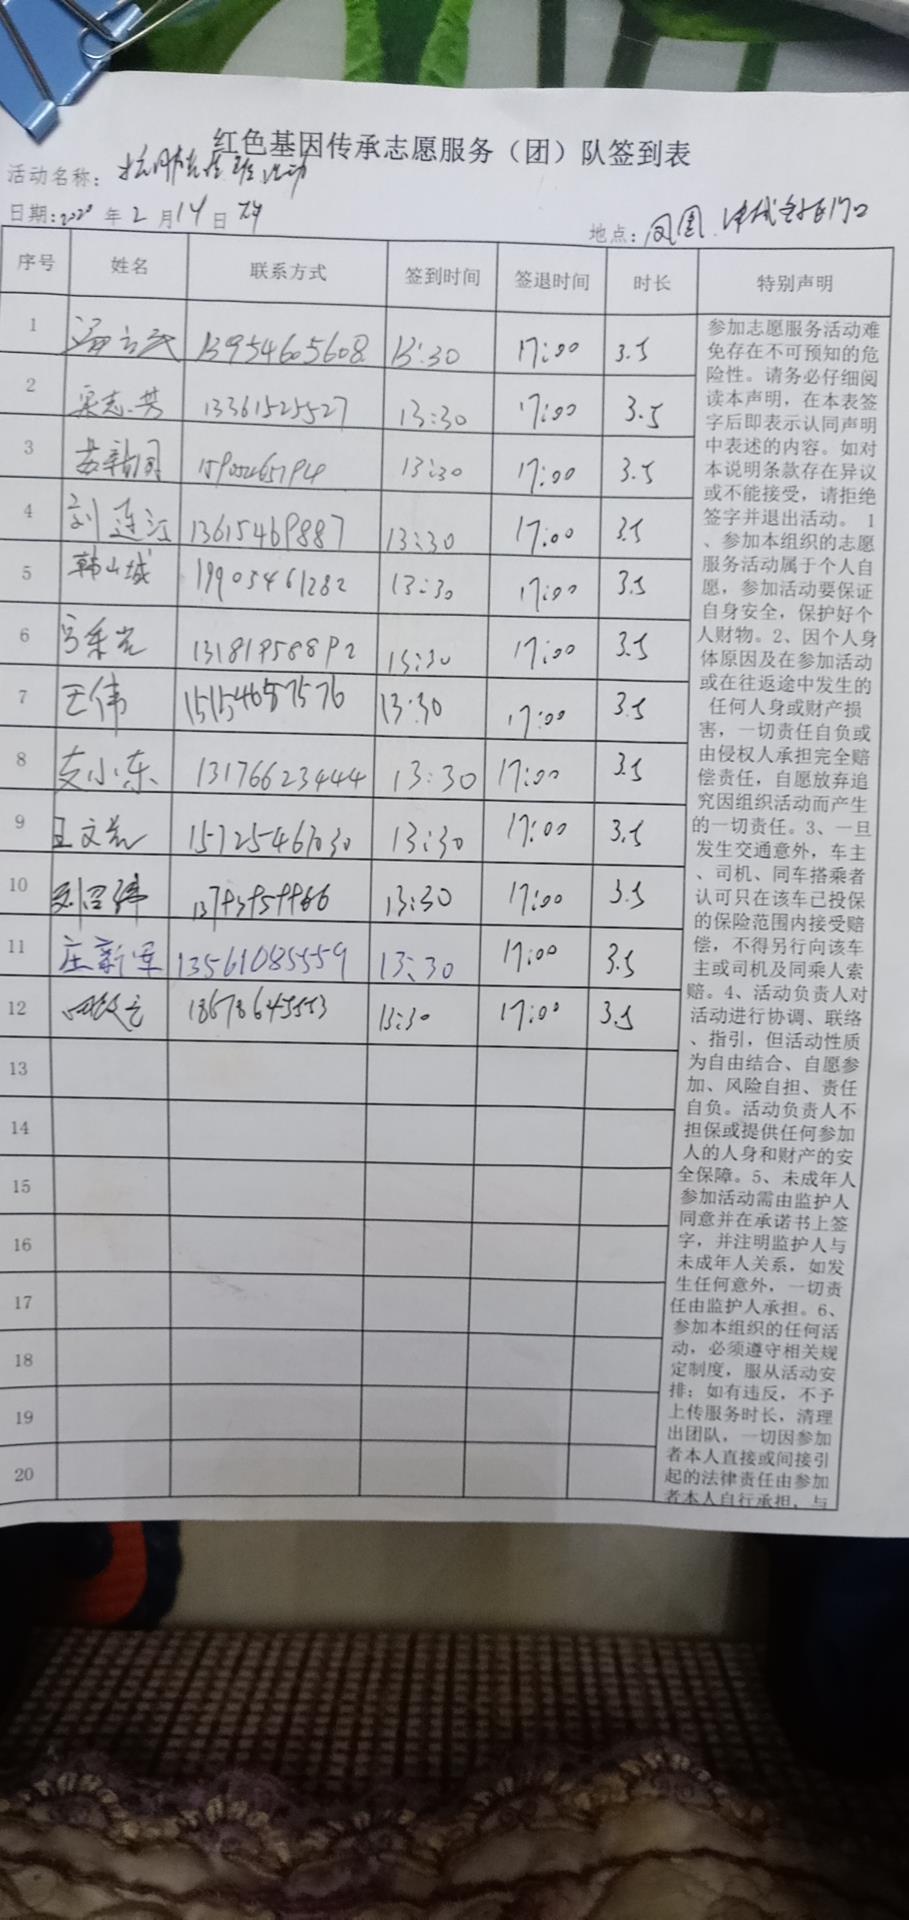 红色基因传承志愿服务（团）队签到表
活动名称：
日期:2020年2月14日下午 地点：凤凰
序号 姓名 联系方式 签到时间 签退时间 时长 特别声明
1 13954605608 13:30 17:00 3.5
2 梁志芳 13361525527 13:30 17:00 3.5
3 13:30 17:00 3.5
4 刘连江 13615469887 13:30 17:00 3.5
5 韩山城 19905461282 13:30 17:00 3.5
6 13181958892 13:30 17:00 3.5
7 王伟 15154687576 13:30 17:00 3.5
8 支小东 13176623444 13:30 17:00 3.5
9 王文 13:30 17:00 3.5
10 13:30 17:00 3.5
11 庄新军 13561085559 13:30 17:00 3.5
12 18678645553 13:30 17:00 3.5
13
14
15
16
17
18
19
20
参加志愿服务活动难
免存在不可预知的危
险性。请务必仔细阅
读本声明，在本表签
字后即表示认同声明
中表述的内容。如对
本说明条款存在异议
或不能接受，请拒绝
签字并退出活动。 1
、参加本组织的志愿
服务活动属于个人自
愿，参加活动要保证
自身安全，保护好个
人财物。2、因个人身
体原因及在参加活动
或在往返途中发生的
任何人身或财产损
害，一切责任自负或
由侵权人承担完全赔
偿责任，自愿放弃追
究因组织活动而产生
的一切责任。3、一旦
发生交通意外，车主
、司机、同车搭乘者
认可只在该车已投保
的保险范围内接受赔
偿，不得另行向该车
主或司机及同乘人索
赔。4、活动负责人对
活动进行协调、联络
、指引，但活动性质
为自由结合、自愿参
加、风险自担、责任
自负。活动负责人不
担保或提供任何参加
人的人身和财产的安
全保障。5、未成年人
参加活动需由监护人
同意并在承诺书上签
字，并注明监护人与
未成年人关系，如发
生任何意外，一切责
任由监护人承担。6、
参加本组织的任何活
动，必须遵守相关规
定制度，服从活动安
排；如有违反，不予
上传服务时长，清理
出团队，一切因参加
者本人直接或间接引
起的法律责任由参加
者本人自行承担，与